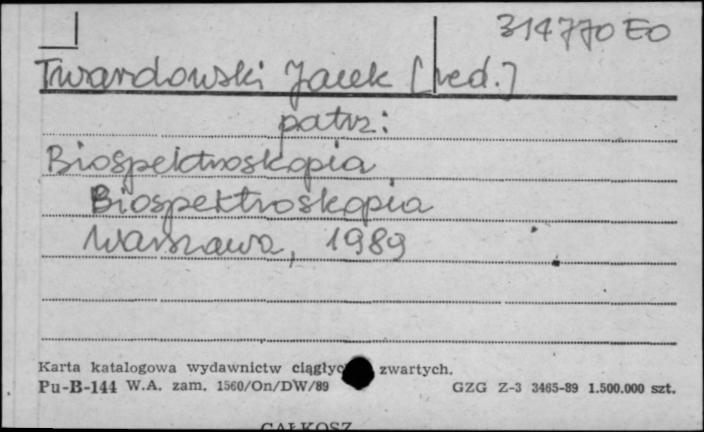 314770 EO
Twardowski Jacek [red.]
patrz:
Biospektroskopia
Biospektroskopia
Warszawa, 1989
Karta katalogowa wydawnictw ciągłyc zwartych.
Pu-B-144 W.A. zam. 1560/On/DW/89 GZG Z-3 3465-89 1.500.000 szt.
CAŁKOSZ